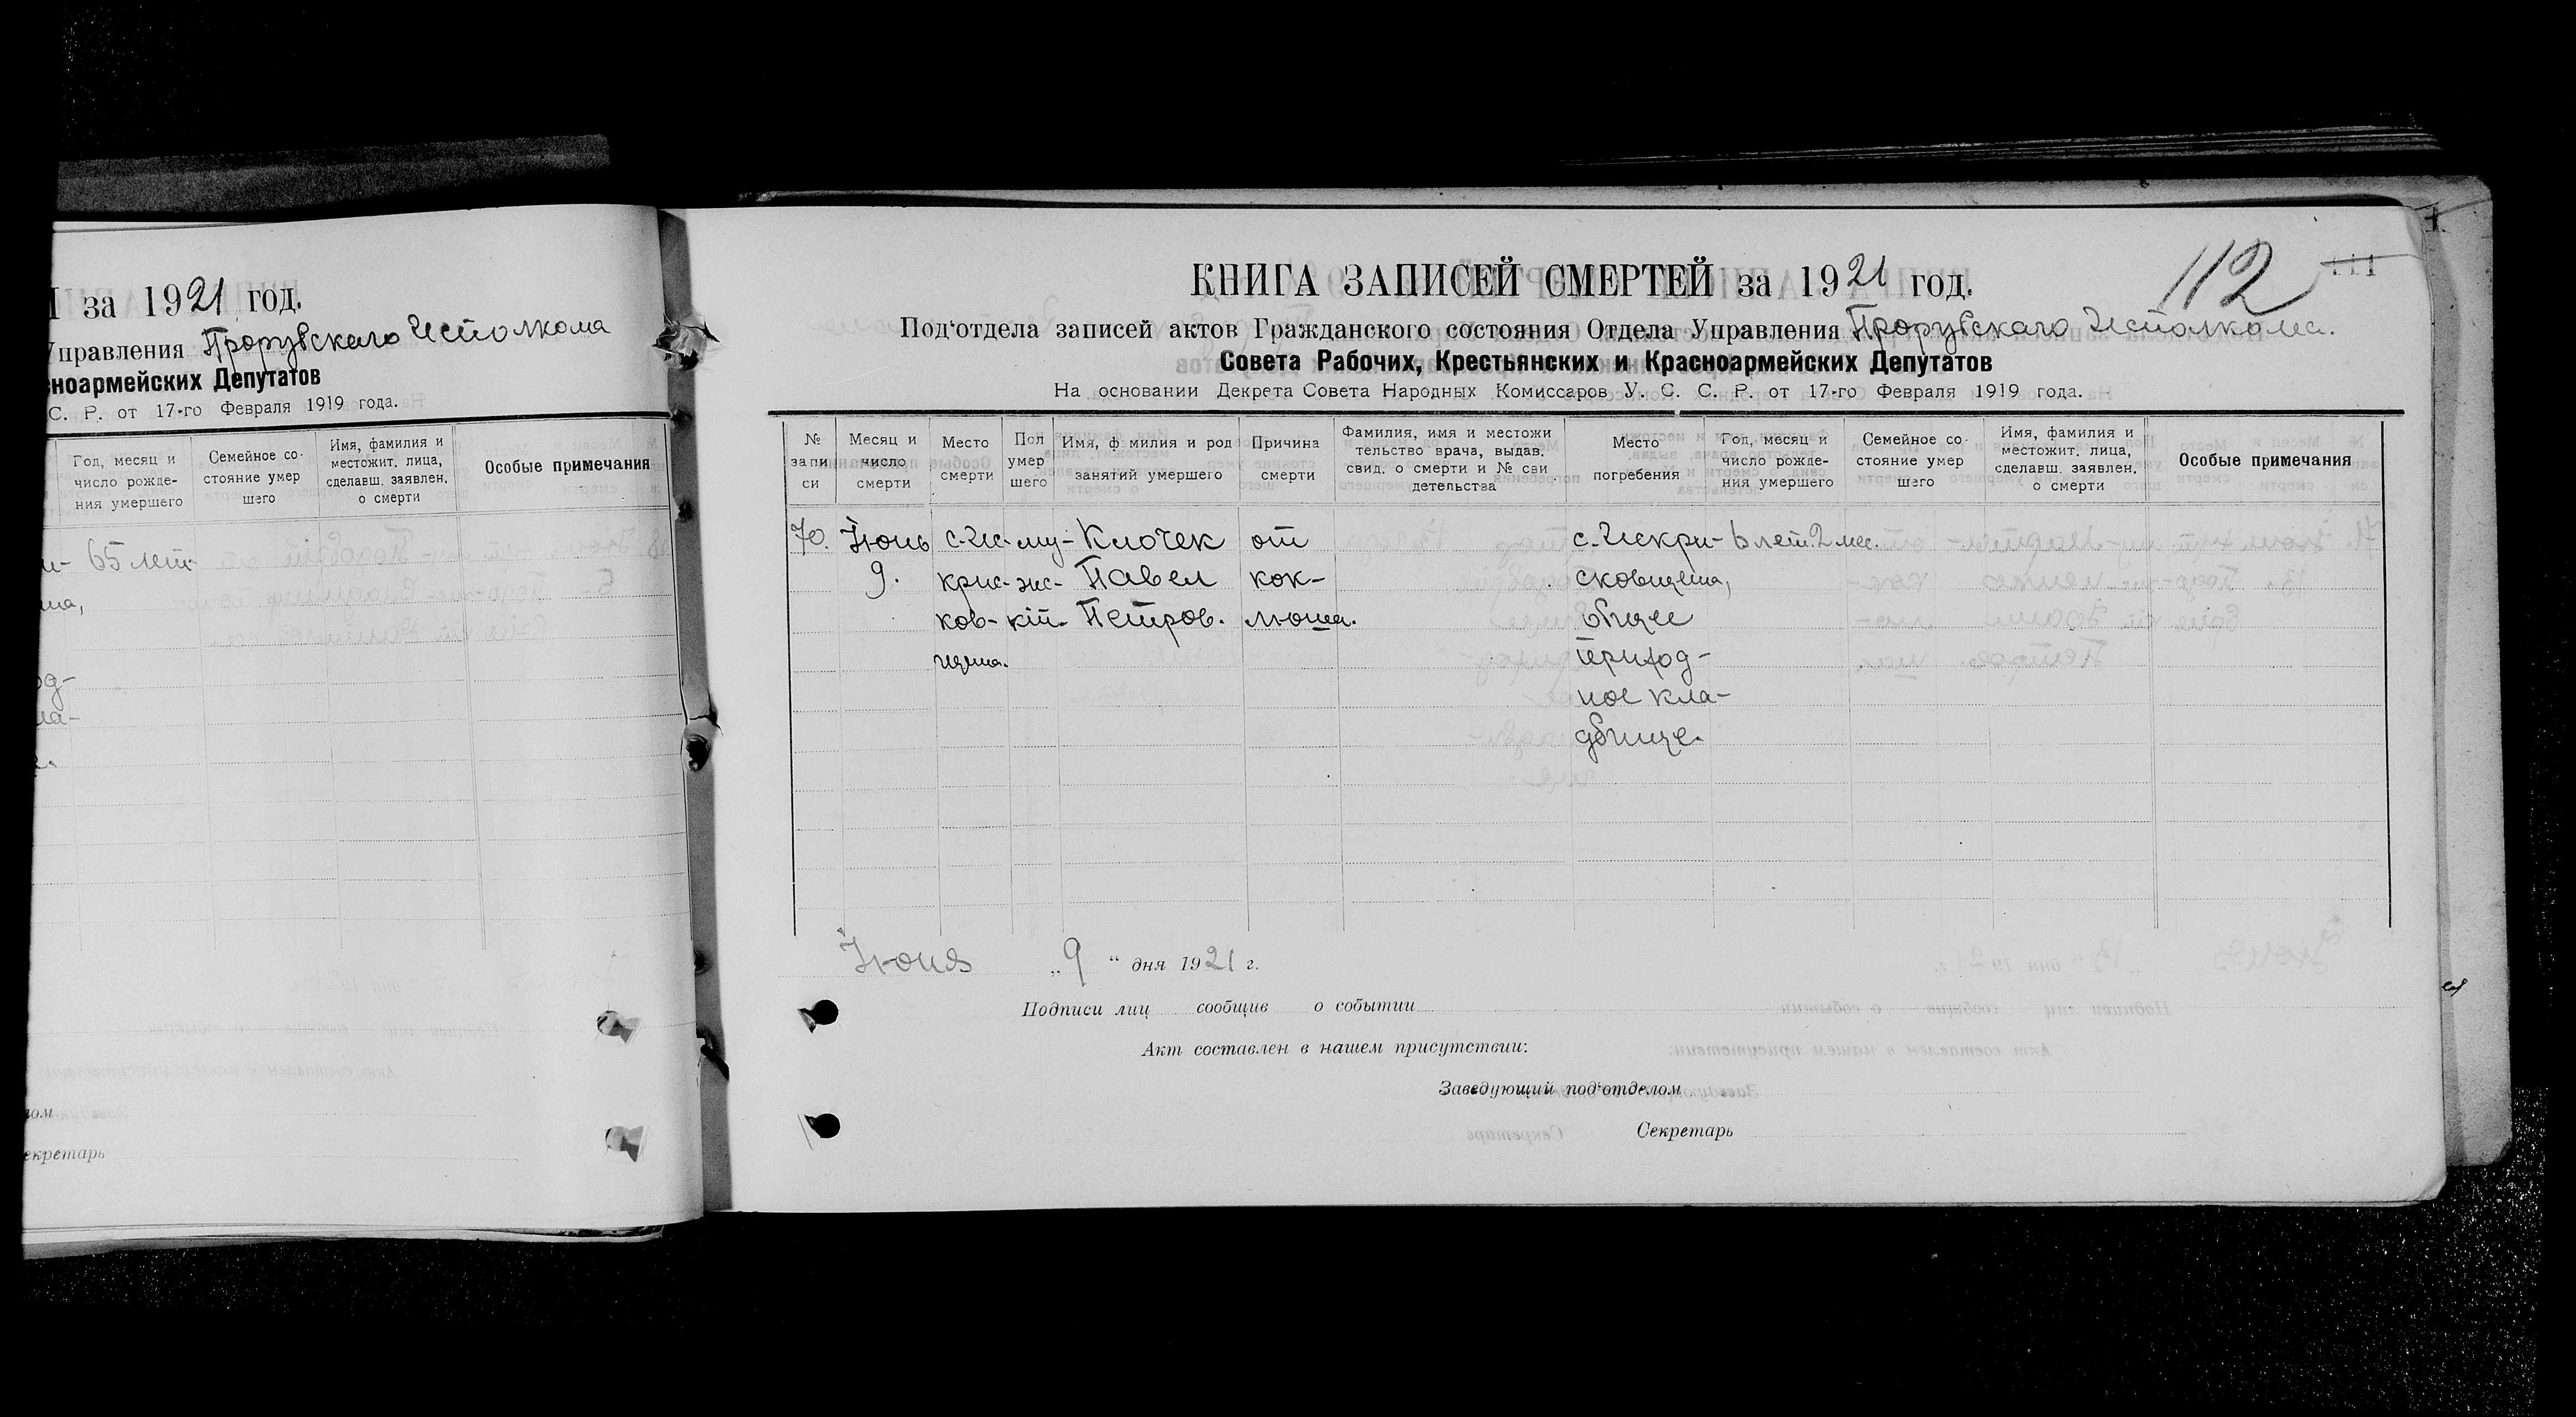 за 1921 год.
Управления Прорубскаго Исполкома
сноармейских Депутатов
С. Р. от 17-го Февраля 1919 года.
Год, месяц и число рожде- ния умершего
Семейное со- стояние умер шего
Имя, фамилия и местожит. лица, сделавш. заявлен. о смерти
Особые примечания
65 лет.
екретарь
112
111
КНИГА ЗАПИСЕЙ СМЕРТЕЙ за 1921 год.
Под'отдела записей актов Гражданского состояния Отдела Управления Прорубскаго Исполкома.
Совета Рабочих, Крестьянских и Красноармейских Депутатов
На основании Декрета Совета Народных Комиссаров У. С. С. Р. от 17-го Февраля 1919 года.
№ запи си
Месяц и число смерти
Место смерти
Пол умер шего
Имя, ф милия и род занятий умершего
Причина смерти
Фамилия, имя и местожи тельство врача, выдав. свид. о смерти и № сви детельства
Место погребения
Год, месяц и число рожде- ния умершего
Семейное со- стояние умер шего
Имя, фамилия и местожит. лица, сделавш. заявлен. о смерти
Особые примечания
70. Июнь с. Ис- му- Клочек от с. Искри- 6 лет. 2 мес.
9. крис- жс- Павел кок- сковщена,
ков- кій. Петров. люша. общее
щена. приход-
ное кла-
дбище.
Июня „9“ дня 1921 г.
Подписи лиц сообщив о событии
Акт составлен в нашем присутствии:
Заведующий под'отделом
Секретарь